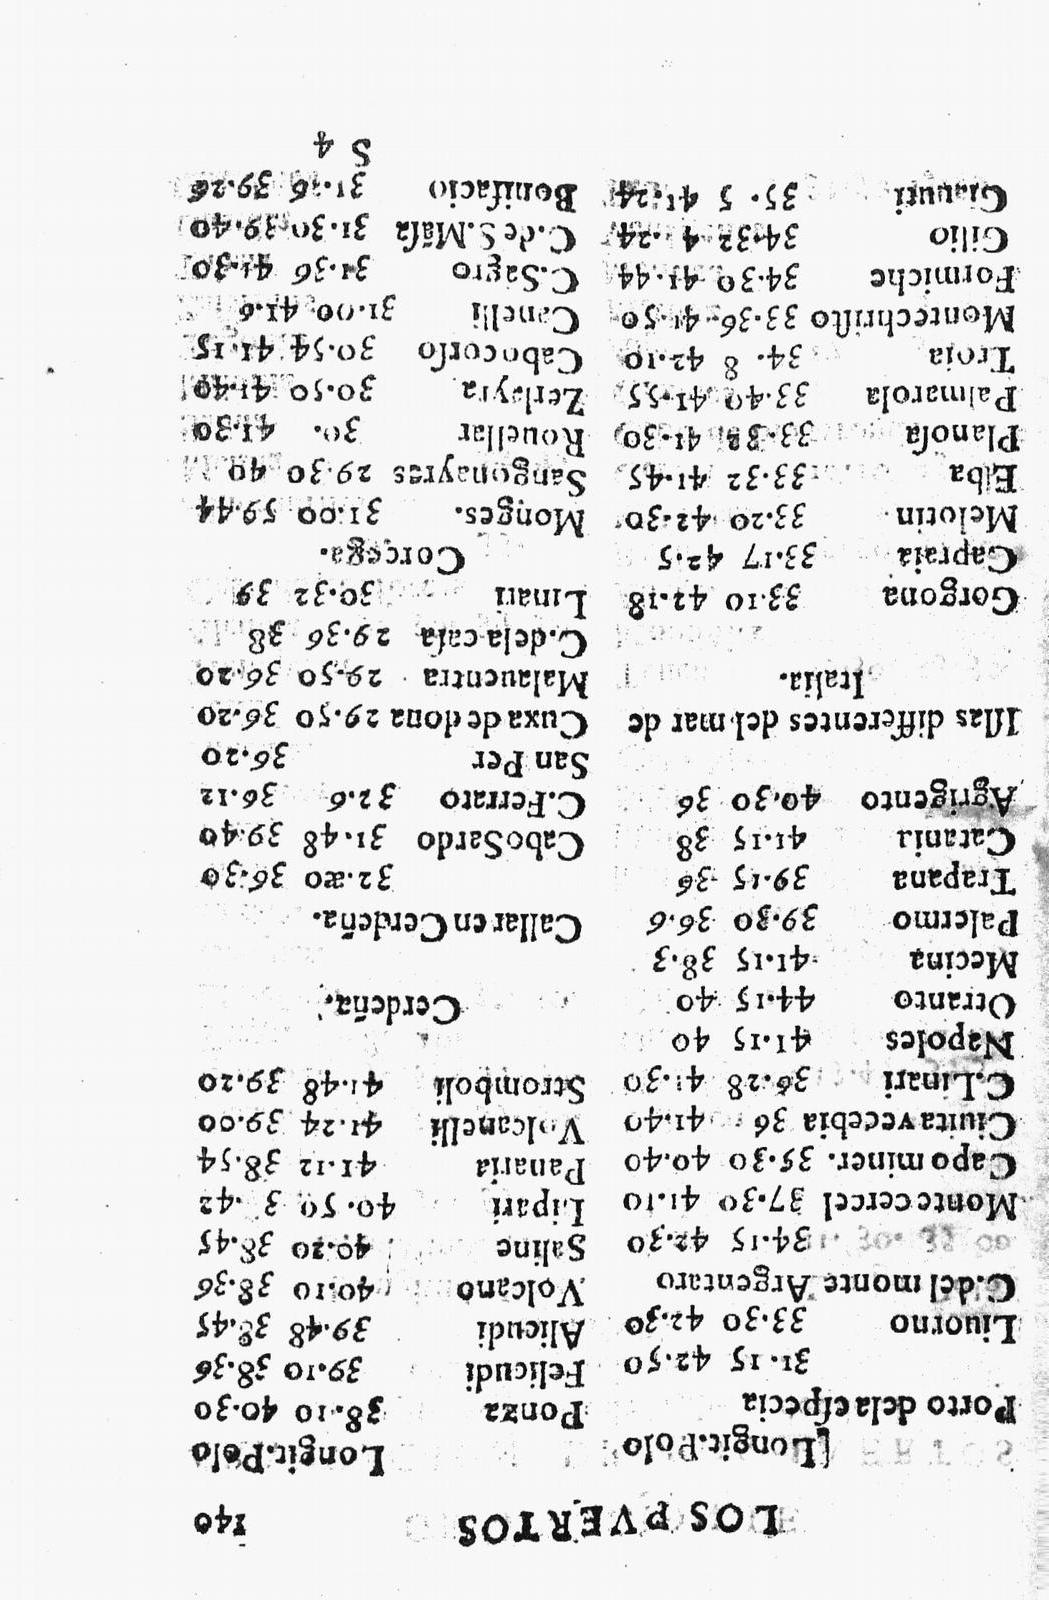 LOS PVERTOS 140
[Longit. Polo
Porto dela especia
31.15 42.50
Liuorno 33.30 42.30
C. del monte Argentaro
34.15 42.30
Monte cercel 37.30 41.10
Capo miner. 35.30 40.40
Ciuita vecebia 36 41.40
C. Linari 36.28 41.30
Napoles 41.15 40
Otranto 44.15 40
Mecina 41.15 38.3
Palermo 39.30 36.6
Trapana 39.15 36
Catania 41.15 38
Agrigento 40.30 36
Islas differentes del mar de
Italia.
Gorgona 33.10 42.18
Capraia 33.17 42.5
Melotin 33.20 42.30
Elba 33.32 41.45
Planosa 41.30
Palmarola 33.40 41.55
Troia 34. 8 42.10
Montechristo 33.36. 41.50
Formiche 34.30 41.44
Gilio 34.32
Gianuti 35. 5 41.24
Longit. Polo
Ponza 38.10 40.30
Felicudi 39.10 38.36
Alicudi 39.48 38.45
Volcano 40.10 38.36
Saline 40.20 38.45
Lipari 40.50 3 .42
Panaria 41.12 38.54
Volcanelli 41.24 39.00
Stromboli 41.48 39.20
Cerdeña.
Callar en Cerdeña.
32.20 36.30
Cabo Sardo 31.48 39.40
C. Ferraro 32.6 36.12
San Per 36.20
Cuxa de dona 29.50 36.20
Malauentra 29.50 36.20
C. de la casa 29.36 38
Linari 30.32 39
Corcega.
Monges. 31.00 59.44
Sangonayres 29.30 40
Rouellar 30. 41.30
Zerlayra 30.50 41.40
Cabo corso 30.54 41.15
Canelli 31.00 41.6
C. Sagro 31.36 41.30
C. de S. Māsa 31.30 39.40
Bonifacio 31.36 39.26
S 4